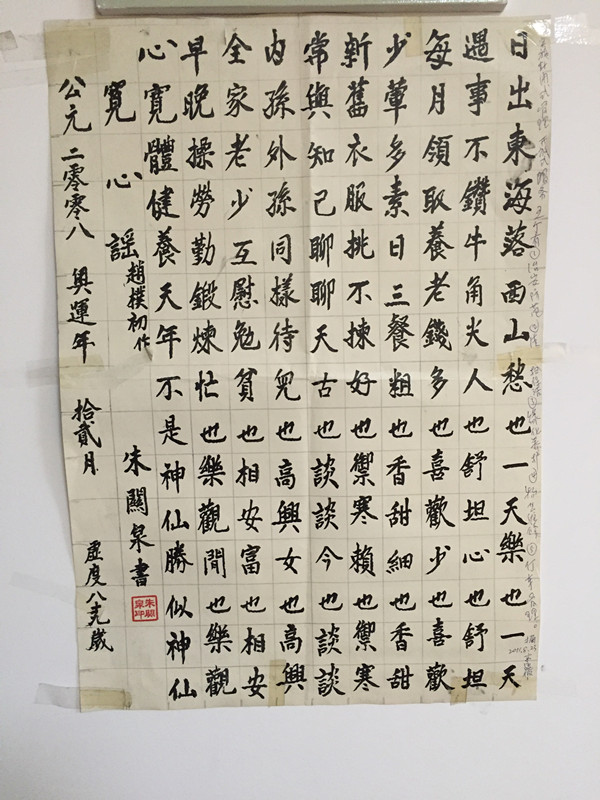 日出東海落西山愁也一天樂也一天
遇事不鑽牛角尖人也舒坦心也舒坦
每月領取養老錢多也喜歡少也喜歡
少葷多素日三餐粗也香甜細也香甜
新舊衣服挑不揀好也禦寒賴也禦寒
常與知己聊聊天古也談談今也談談
内孫外孫同樣待兒也高興女也高興
全家老少互慰勉貧也相安富也相安
早晚操勞勤鍛煉忙也樂觀間也樂觀
心寬體健養天年不是神仙勝似神仙
寬心謠 趙撲初作 朱關泉書
朱關泉印
公元二零零八 奧運年 拾貳月 虛度八歲